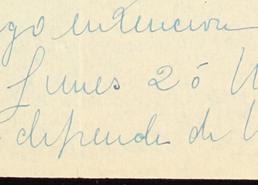 go intencion
Lunes 2ó
depende de